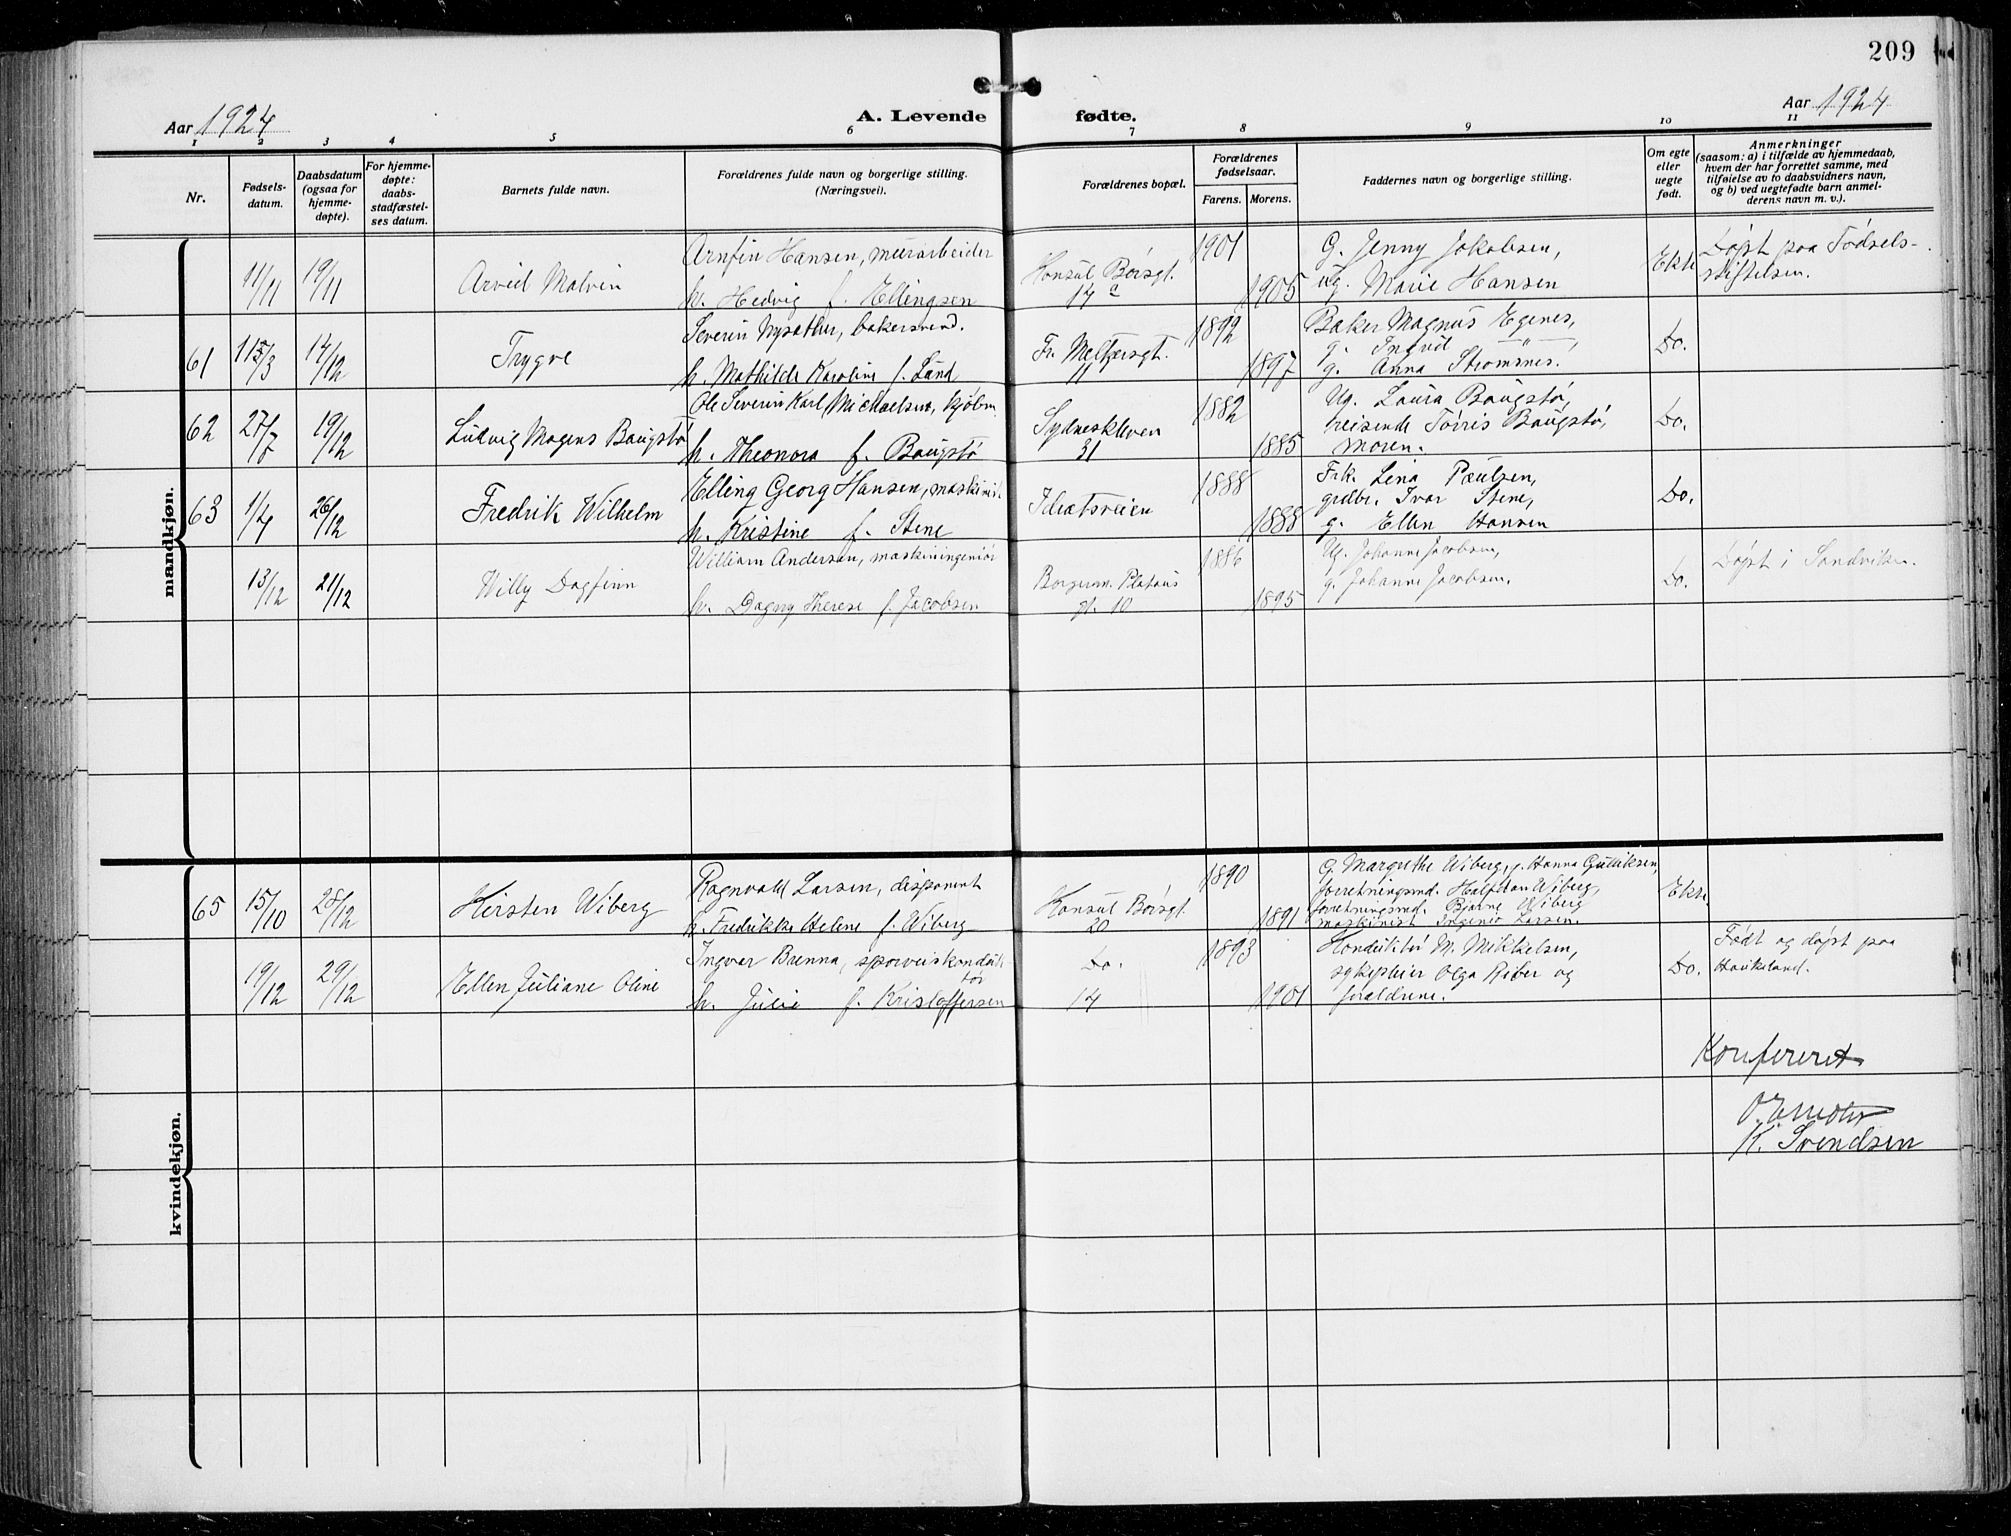 209
Aar 1924
A. Levende fødte.
Aar 1924
1 2 3 4 5 6 7 8 9 10 11
Nr.
Fødsels-
datum.
Daabsdatum
(ogsaa for
hjemme-
døpte).
For hjemme-
døpte:
daabs-
stadfæstel-
ses datum.
Barnets fulde navn.
Forældrenes fulde navn og borgerlige stilling.
(Næringsvei).
Forældrenes bopæl.
Forældrenes
fødselsaar.
Farens. Morens.
Faddernes navn og borgerlige stilling.
Om egte
eller
uegte
født.
Anmerkninger
(saasom: a) i tilfælde av hjemmedaab,
hvem der har forrettet samme, med
tilføielse av to daabsvidners navn,
og b) ved uegtefødte barn anmel-
derens navn m. v.).
mandkjøn.
11/11 19/11 Arvid Malvin
Arnfin Hansen, murarbeider
h. Hedvig f. Ellingsen
Konsul Børsgt.
17 a
1901
1905
G. Jenny Jakobsen,
ug. Marie Hansen
Ekte
Døpt paa Fødsels-
stiftelsen.
61 14/12 Trygve
Severin Nysæther, bakersvend.
h. Mathilde Karoline f. Lund
Fr. Meltzersgt.
11
1892
1897
Baker Magnus Egenes,
g. Ingvil "
g. Anna Strømsnes.
Do.
62 27/7 19/12 Ludvig Mogens Baugstø
Ole Severin Karl Michaelsen, kjøbm.
h. Theonora f. Baugstø
Sydneskleven
31
1882
1885
Ug. Laura Baugstø,
reisende Tørris Baugstø,
moren.
Do.
63 26/12 Fredrik Wilhelm
Elling Georg Hansen, maskinist.
h. Kristine f. Stene
Idrætsveien
1888
1888
Frk. Lina Paulsen,
grdbr. Ivar Stene,
g. Ellen Hansen
Do.
13/12 21/12 Willy Dagfinn
William Andersen, maskiningeniør
h. Dagny Therese f. Jacobsen
Borgerm. Platous
gt. 10
1886
1895
Ug. Johanne Jacobsen,
g. Johanne Jacobsen.
Do.
Døpt i Sandviken.
kvindekjøn.
65 15/10 28/12 Kirsten Wiberg
Ragnvald Larsen, disponent
h. Fredrikke Helene f. Wiberg
Konsul Børsgt.
20
1890
1891
G. Margrethe Wiberg, g. Hanna Gulliksen,
forretningsmd. Halfdan Wiberg,
forretningsmd. Bjarne Wiberg
maskinist Larsen.
Ekte
19/12 29/12 Ellen Juliane Oline
Ingvar Brenna, sporveiskonduk-
tør
h. Julie f. Kristoffersen
Do.
14
1893
1901
Konduktør M. Mikkelsen,
sykepleier Olga Riber og
forældrene.
Do.
Født og døpt paa
Haukeland.
Konfereret
K. Svendsen